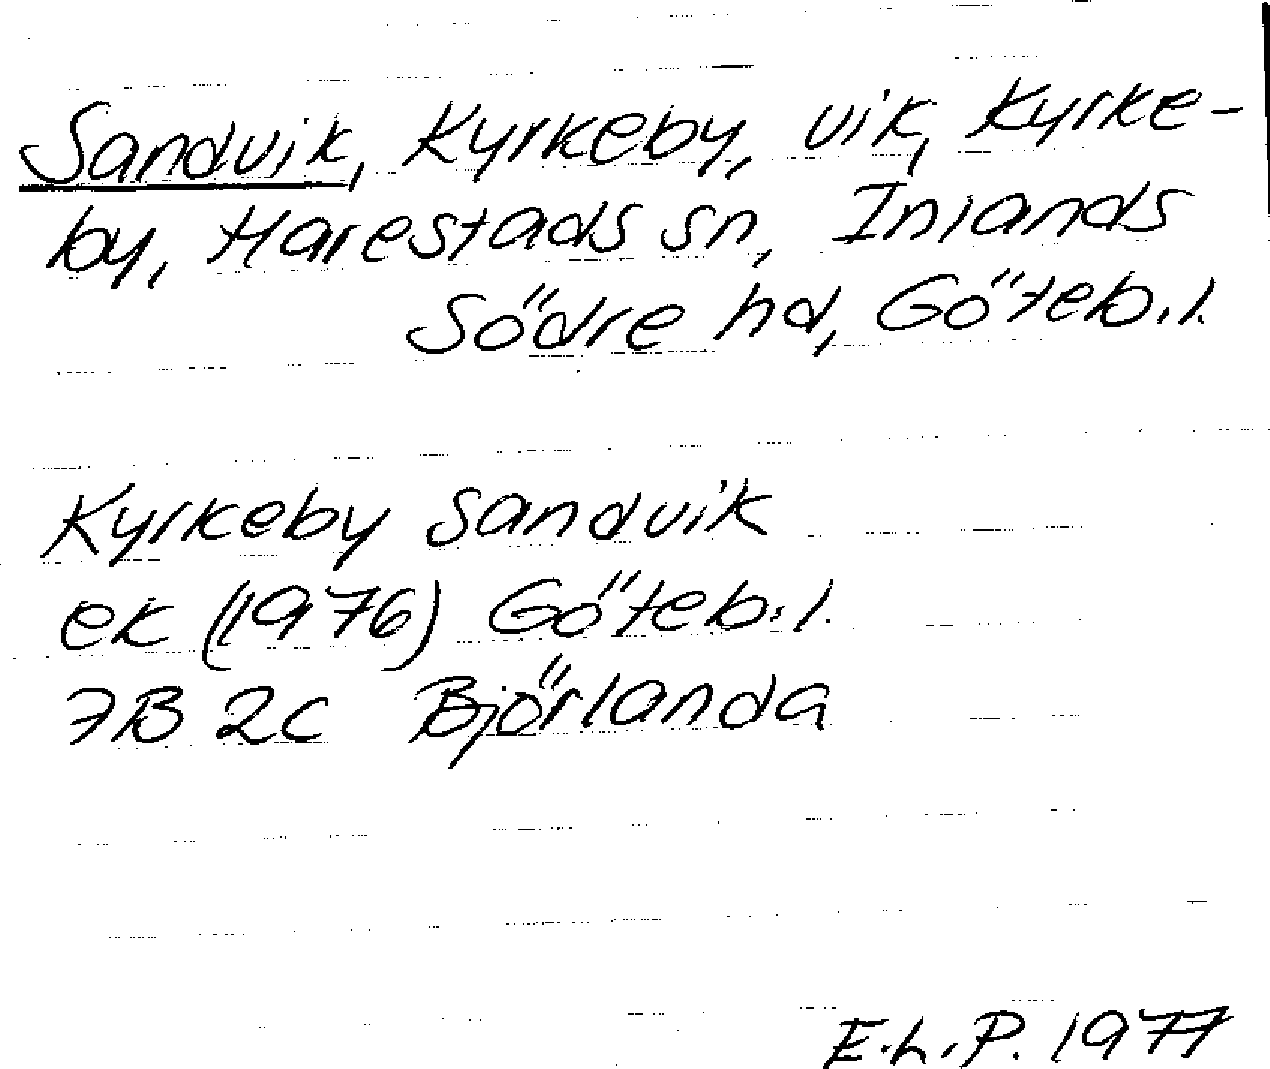 Sandvik, Kyrkeby, vik, Kyrke-
by, Harestads sn, Inlands
Södre hd, Göteb.l.
Kyrkeby Sandvik
ek (1976) Göteb.l.
7B 2c Björlanda
E.L.P. 1977